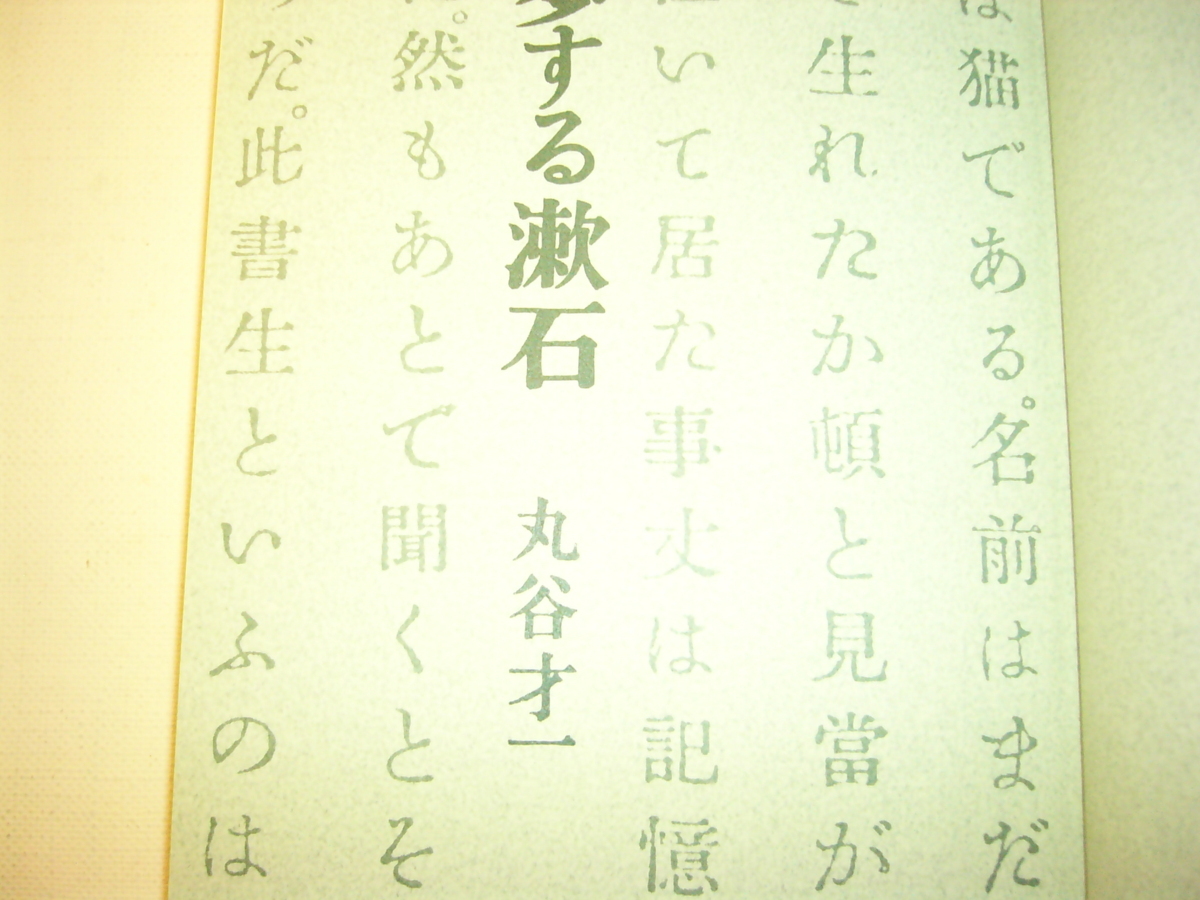 猫である。名前はまだ
生れたか頓と見當が
いて居た事丈は記憶
する漱石 丸谷才一
然もあとで聞くとそ
だ。此書生といふのは